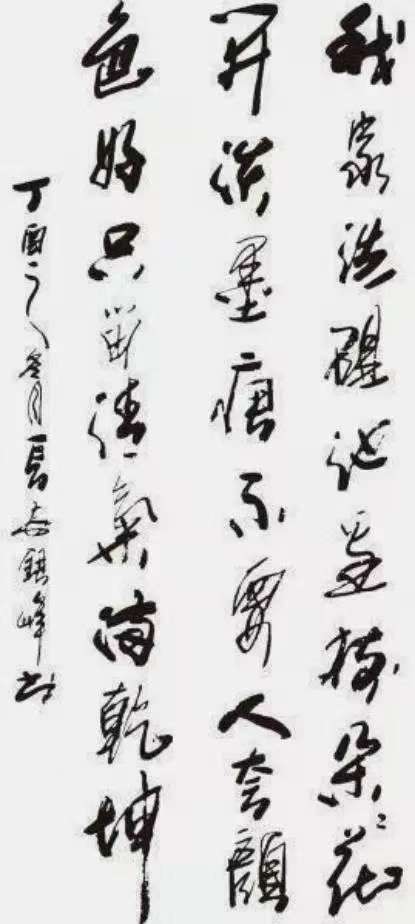 我家洗硯池邊樹朵々花
開淡墨痕不要人夸顏
色好只留清氣滿乾坤
丁酉冬月長安峰书